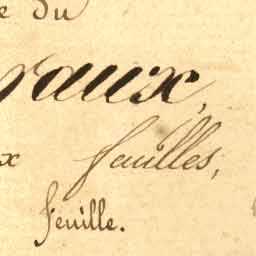 e du
raux,
x feuilles,
feuille.